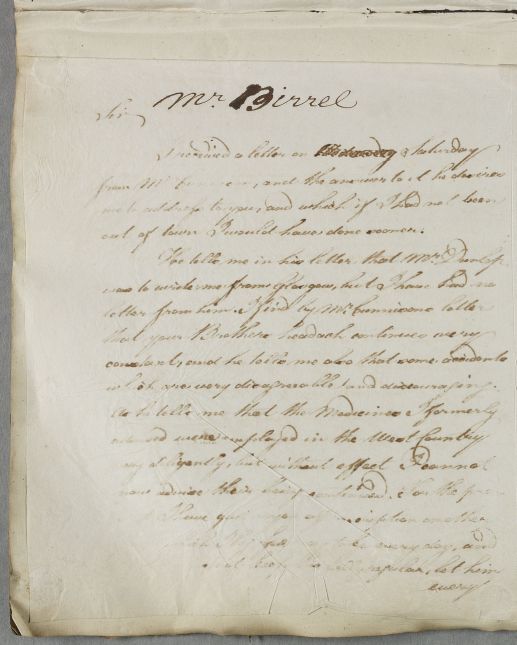 Mr. Birrel
Sir
I received a letter on Saturday
from Mr and the answer to it he desires
me to address to you, and which if I had not been
out of town I would have done sooner.
He tells me in his letter that Mr. Dunlop
was to write me from Glasgow, but I have had no
letter from him. I find by Mr. letter
that your Brothers headach continues very
constant, and he tells me also that some accidents
which are very disagreeable and discouraging.
As he tells me that the Medicines I formerly
advised were employed in the West Country
very diligently, but without effect I cannot
now advise their being continued. For the
I have given
every day, and
let him
every